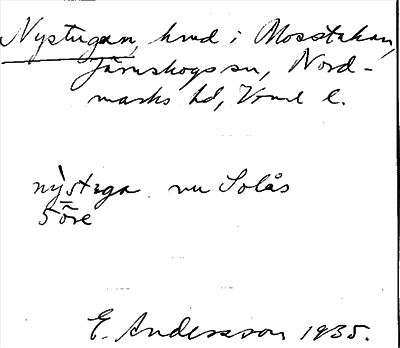 Nystugan, hmd i Mosstakan,
Järnskogs sn, Nord-
marks hd, Vrml l.
nỳstẹga vu Solås
5 öre
E. Andersson 1935.